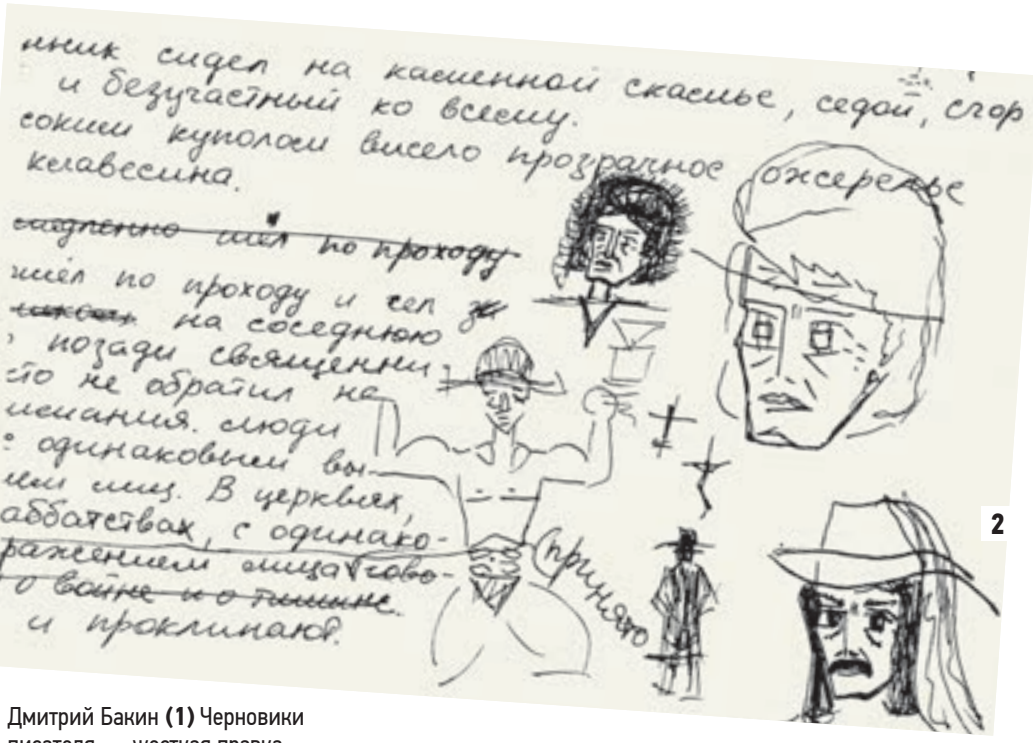 нник сидел на каменной скамье, седой, сгор
и безучастный ко всему.
соким куполом висело прозрачное ожерелье
клавесина.
медленно шёл по проходу
шёл по проходу и сел
на соседнюю
позади священни-
то не обратил на
имания. люди
с одинаковым вы-
ием лиц. В церквях,
аббатствах, с одинако-
ражением лица гово-
о войне и о тишине.
и проклинают.
принято
2
Дмитрий Бакин (1) Черновики
писателя — жесткая правка